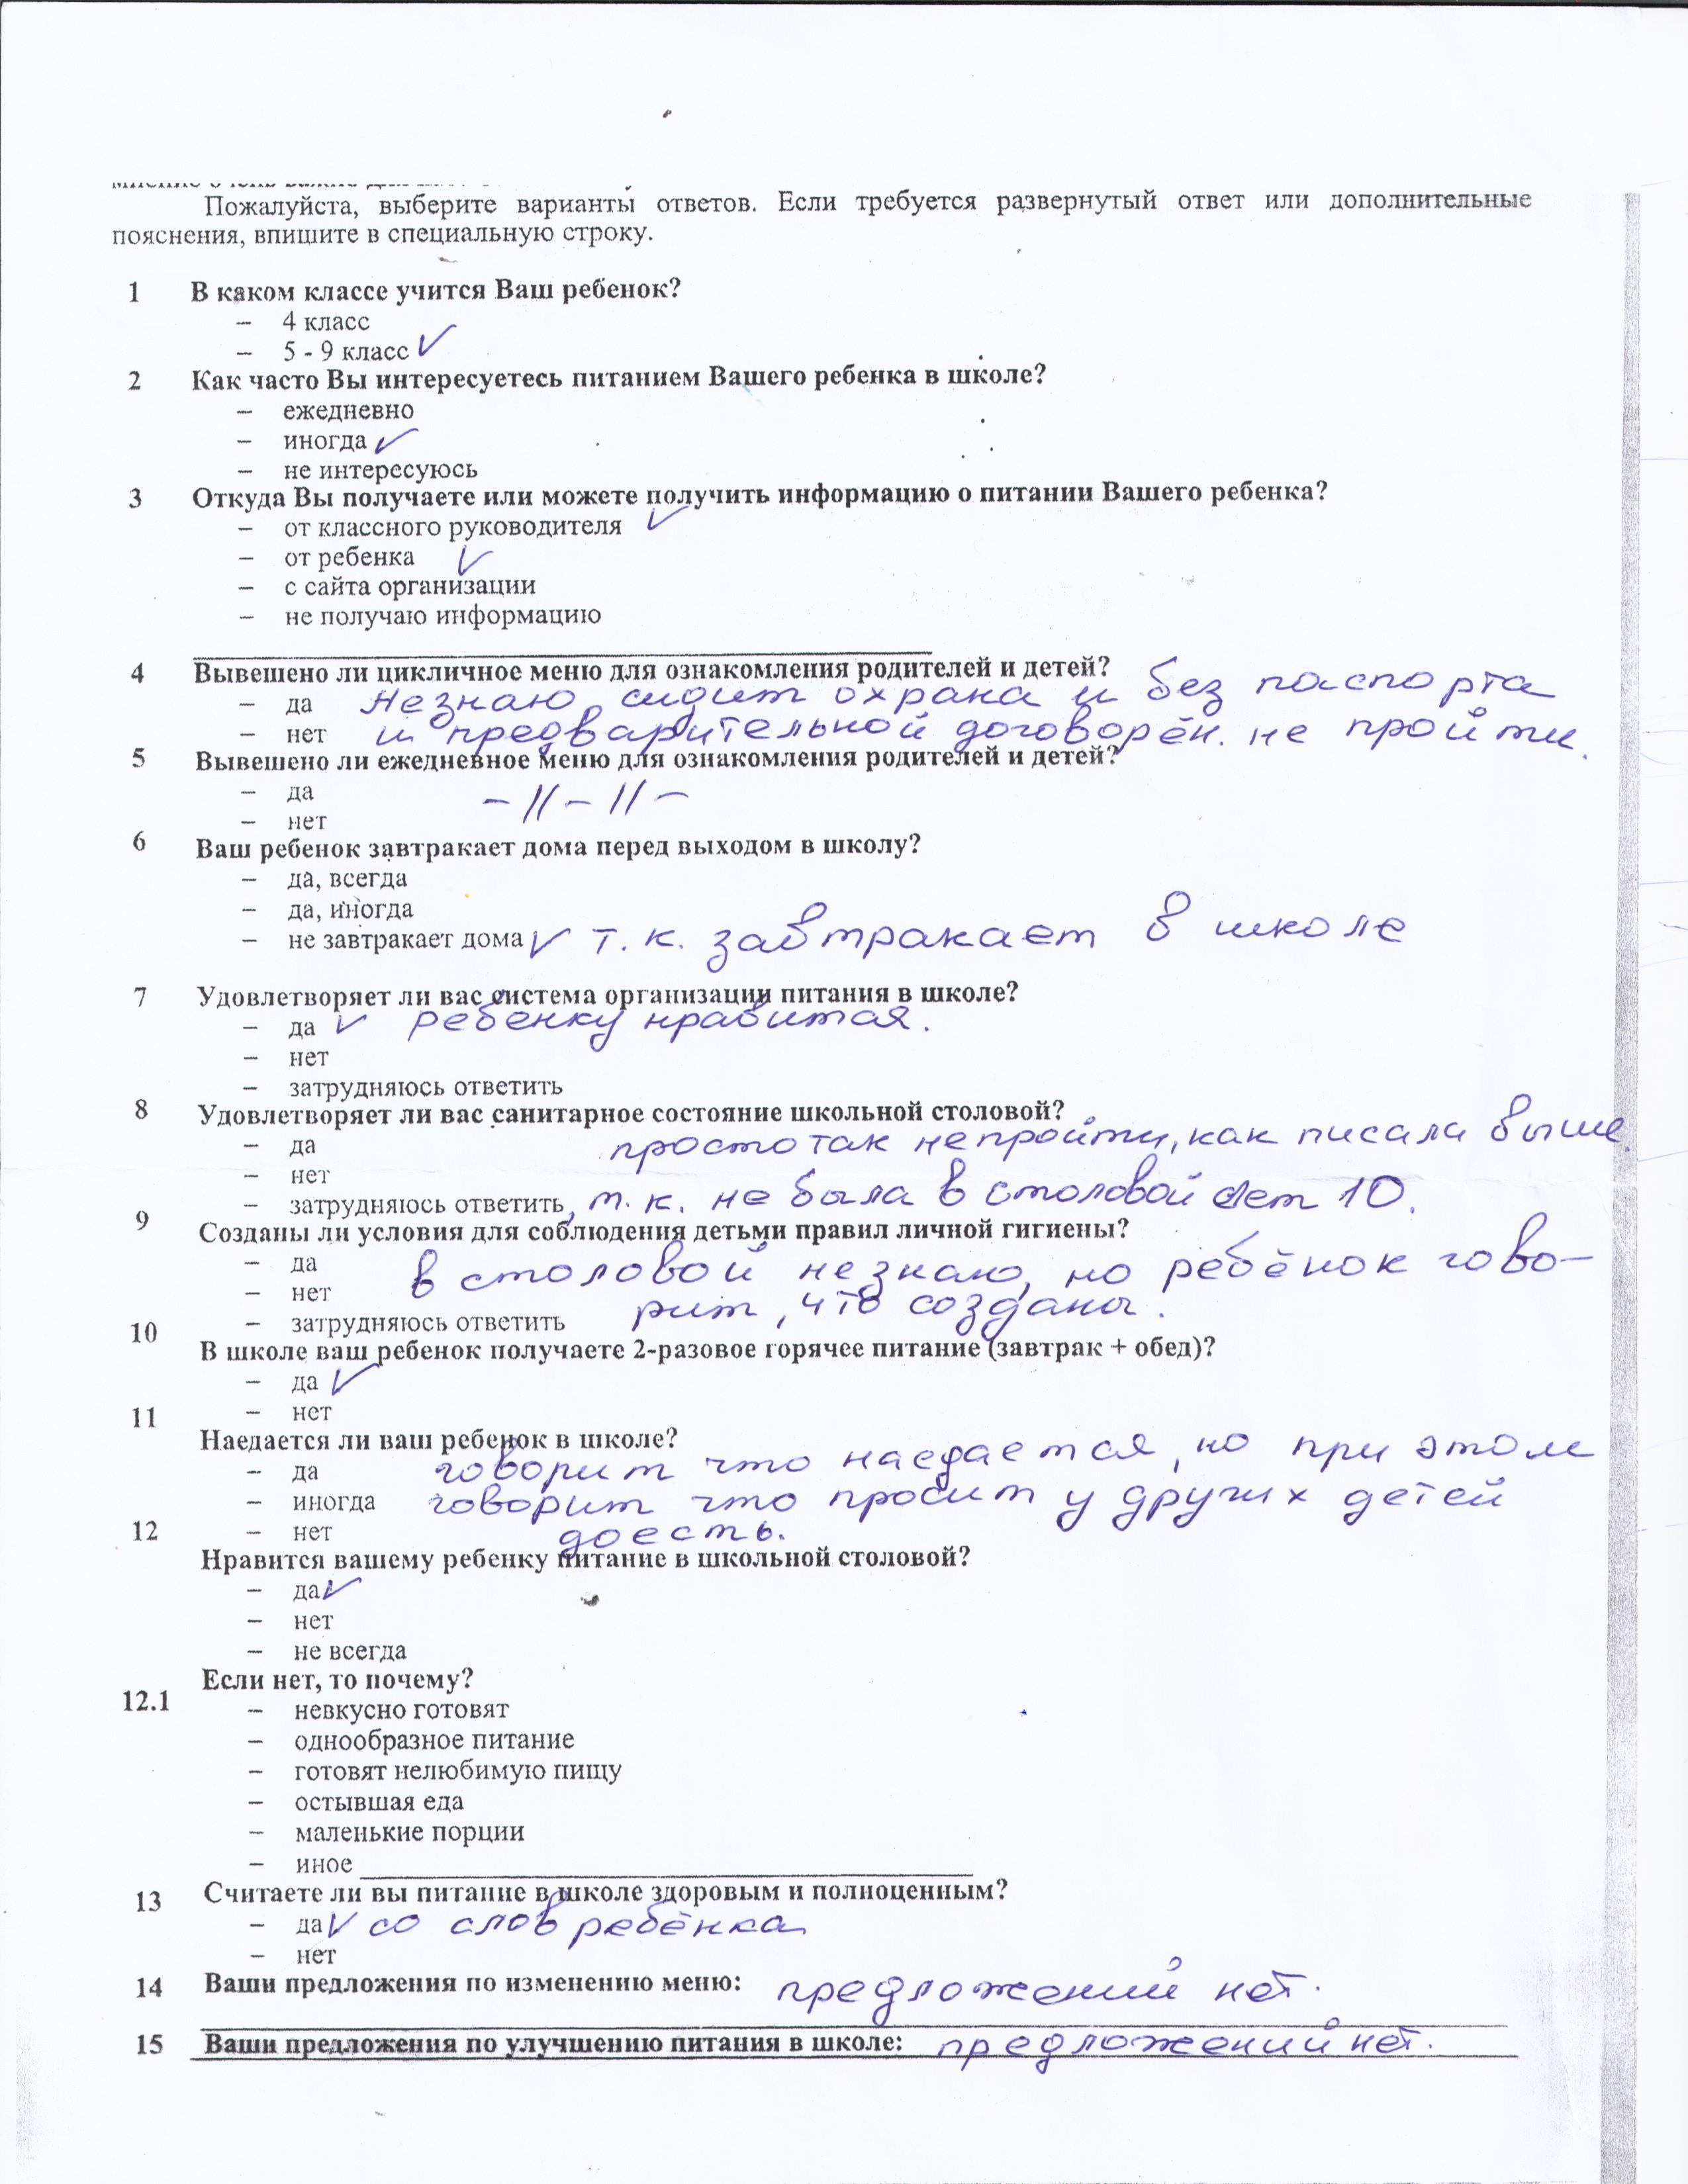 Пожалуйста, выберите варианты ответов. Если требуется развернутый ответ или дополнительные
пояснения, впишите в специальную строку.
1 В каком классе учится Ваш ребенок?
– 4 класс
– 5 - 9 класс ✓
2 Как часто Вы интересуетесь питанием Вашего ребенка в школе?
– ежедневно
– иногда ✓
– не интересуюсь
3 Откуда Вы получаете или можете получить информацию о питании Вашего ребенка?
– от классного руководителя ✓
– от ребенка ✓
– с сайта организации
– не получаю информацию
4 Вывешено ли цикличное меню для ознакомления родителей и детей?
– да Незнаю, сидит охрана и без паспорта
– нет и предварительной договорён. не пройти.
5 Вывешено ли ежедневное меню для ознакомления родителей и детей?
– да –//–//–
– нет
6 Ваш ребенок завтракает дома перед выходом в школу?
– да, всегда
– да, иногда
– не завтракает дома ✓ т.к. завтракает в школе
7 Удовлетворяет ли вас система организации питания в школе?
– да ✓ ребенку нравится.
– нет
– затрудняюсь ответить
8 Удовлетворяет ли вас санитарное состояние школьной столовой?
– да просто так не пройти, как писала выше.
– нет
– затрудняюсь ответить, т.к. не была в столовой лет 10.
9 Созданы ли условия для соблюдения детьми правил личной гигиены?
– да в столовой незнаю, но ребёнок гово-
– нет
– затрудняюсь ответить рит, что созданы.
10 В школе ваш ребенок получаете 2-разовое горячее питание (завтрак + обед)?
– да ✓
– нет
11 Наедается ли ваш ребенок в школе?
– да говорит что наедается, но при этом
– иногда говорит что просит у других детей
– нет доесть.
12 Нравится вашему ребенку питание в школьной столовой?
– да ✓
– нет
– не всегда
12.1 Если нет, то почему?
– невкусно готовят
– однообразное питание
– готовят нелюбимую пищу
– остывшая еда
– маленькие порции
– иное
13 Считаете ли вы питание в школе здоровым и полноценным?
– да ✓ со слов ребёнка
– нет
14 Ваши предложения по изменению меню: предложений нет.
15 Ваши предложения по улучшению питания в школе: предложений нет.